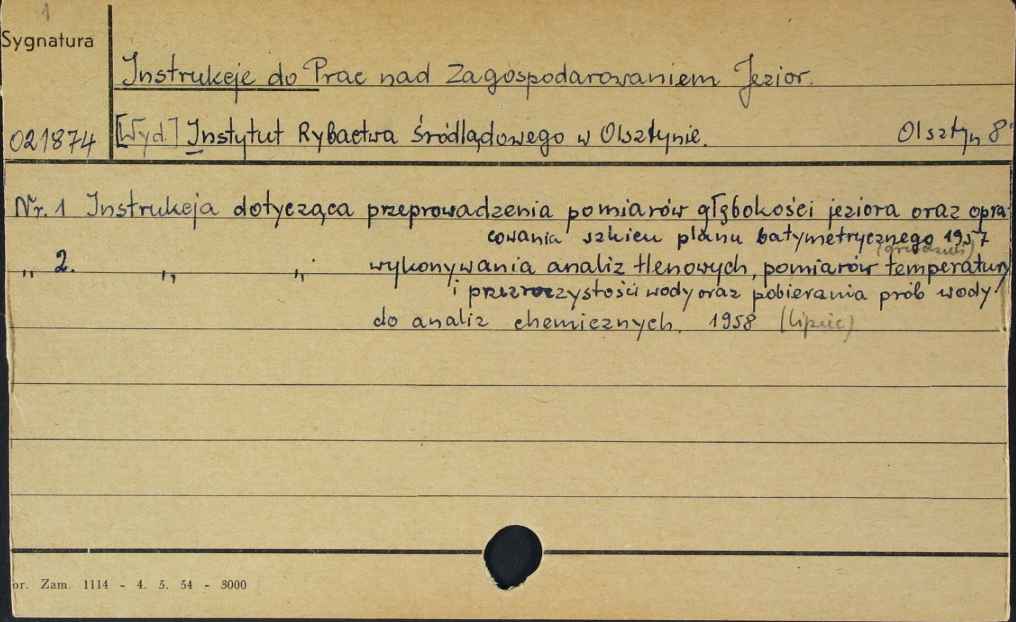 1
Sygnatura
Instrukcje do Prac nad Zagospodarowaniem Jezior.
021874 [Wyd.] Instytut Rybactwa Śródlądowego w Olsztynie. Olsztyn 8°
Nr. 1 Instrukcja dotycząca przeprowadzenia pomiarów głębokości jeziora oraz opra-
cowania szkicu planu batymetrycznego 1957
(grudzień)
„ 2. „ „ wykonywania analiz tlenowych, pomiarów temperatury
i przezroczystości wody oraz pobierania prób wody
do analiz chemicznych. 1958 (lipiec)
or. Zam. 1114 - 4. 5. 54 - 3000